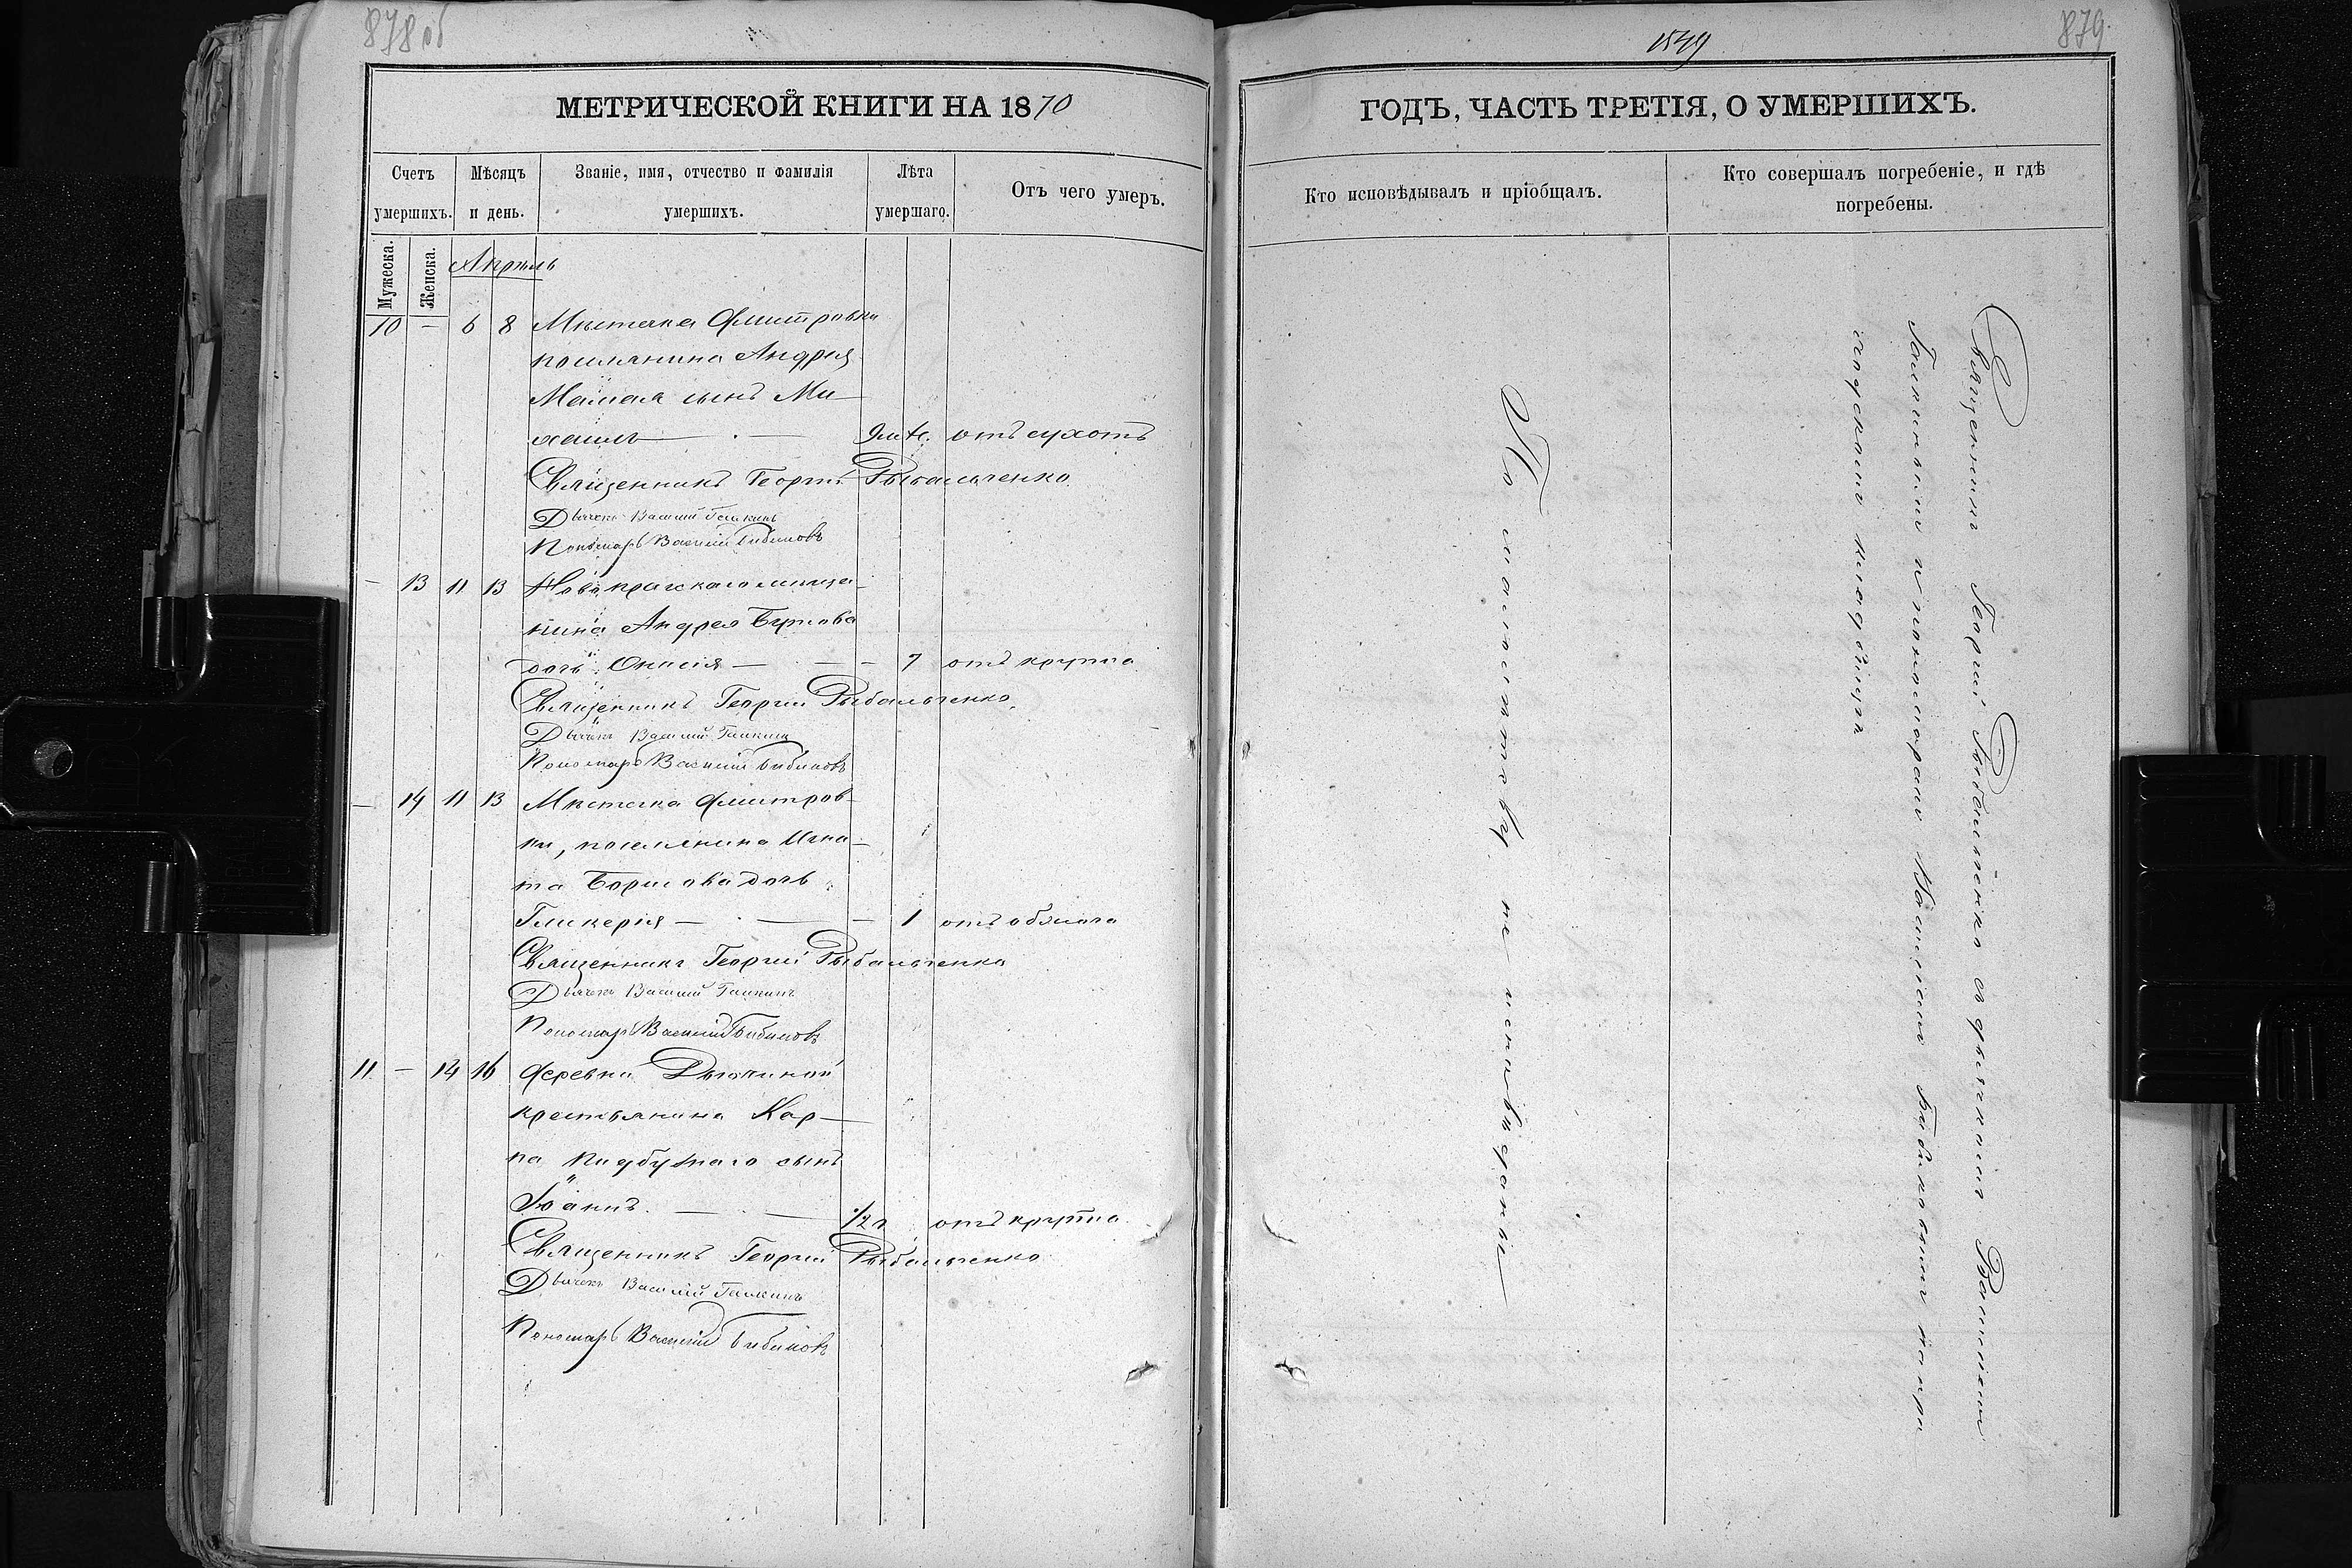 878 об
МЕТРИЧЕСКОЙ КНИГИ НА 1870
Счетъ умершихъ.
Мужеска.
Женска.
Мѣсяцъ и день.
Званіе, имя, отчество и фамилія умершихъ.
Лѣта умершаго.
Отъ чего умеръ.
Апрѣль
10 — 6 8 Мѣстечка Дмитровки
поселянина Андрея
сынъ Ми-
хаилъ — 9 отъ сухотъ
Священникъ Георгій Рыбальченко
Дьячекъ Василій Галкинъ
Пономарь Василій Бибиковъ
— 13 11 13 Новопражскаго мѣща-
нина Андрея
дочь — — 7 отъ крупа
Священникъ Георгій Рыбальченко
Дьячекъ Василій Галкинъ
Пономарь Василій Бибиковъ
— 14 11 13 Мѣстечка Дмитров-
ки, поселянина Игна-
та Борисова дочь
Гликерія — — 1 отъ
Священникъ Георгій Рыбальченко
Дьячекъ Василій Галкинъ
Пономарь Василій Бибиковъ
11 — 14 16 Деревни
крестьянина Кар-
па сынъ
Іоаннъ — 1/2 г отъ крупа
Священникъ Георгій Рыбальченко
Дьячекъ Василій Галкинъ
Пономарь Василій Бибиковъ
1549
879
ГОДЪ, ЧАСТЬ ТРЕТІЯ, О УМЕРШИХЪ.
Кто исповѣдывалъ и пріобщалъ.
Кто совершалъ погребеніе, и гдѣ
погребены.
По малолѣтству не исповѣданы
Священникъ Георгій Рыбальченко съ дьячкомъ Василіемъ
Галкинымъ и пономаремъ Василіемъ Бибиковымъ на при
ходскомъ кладбищѣ